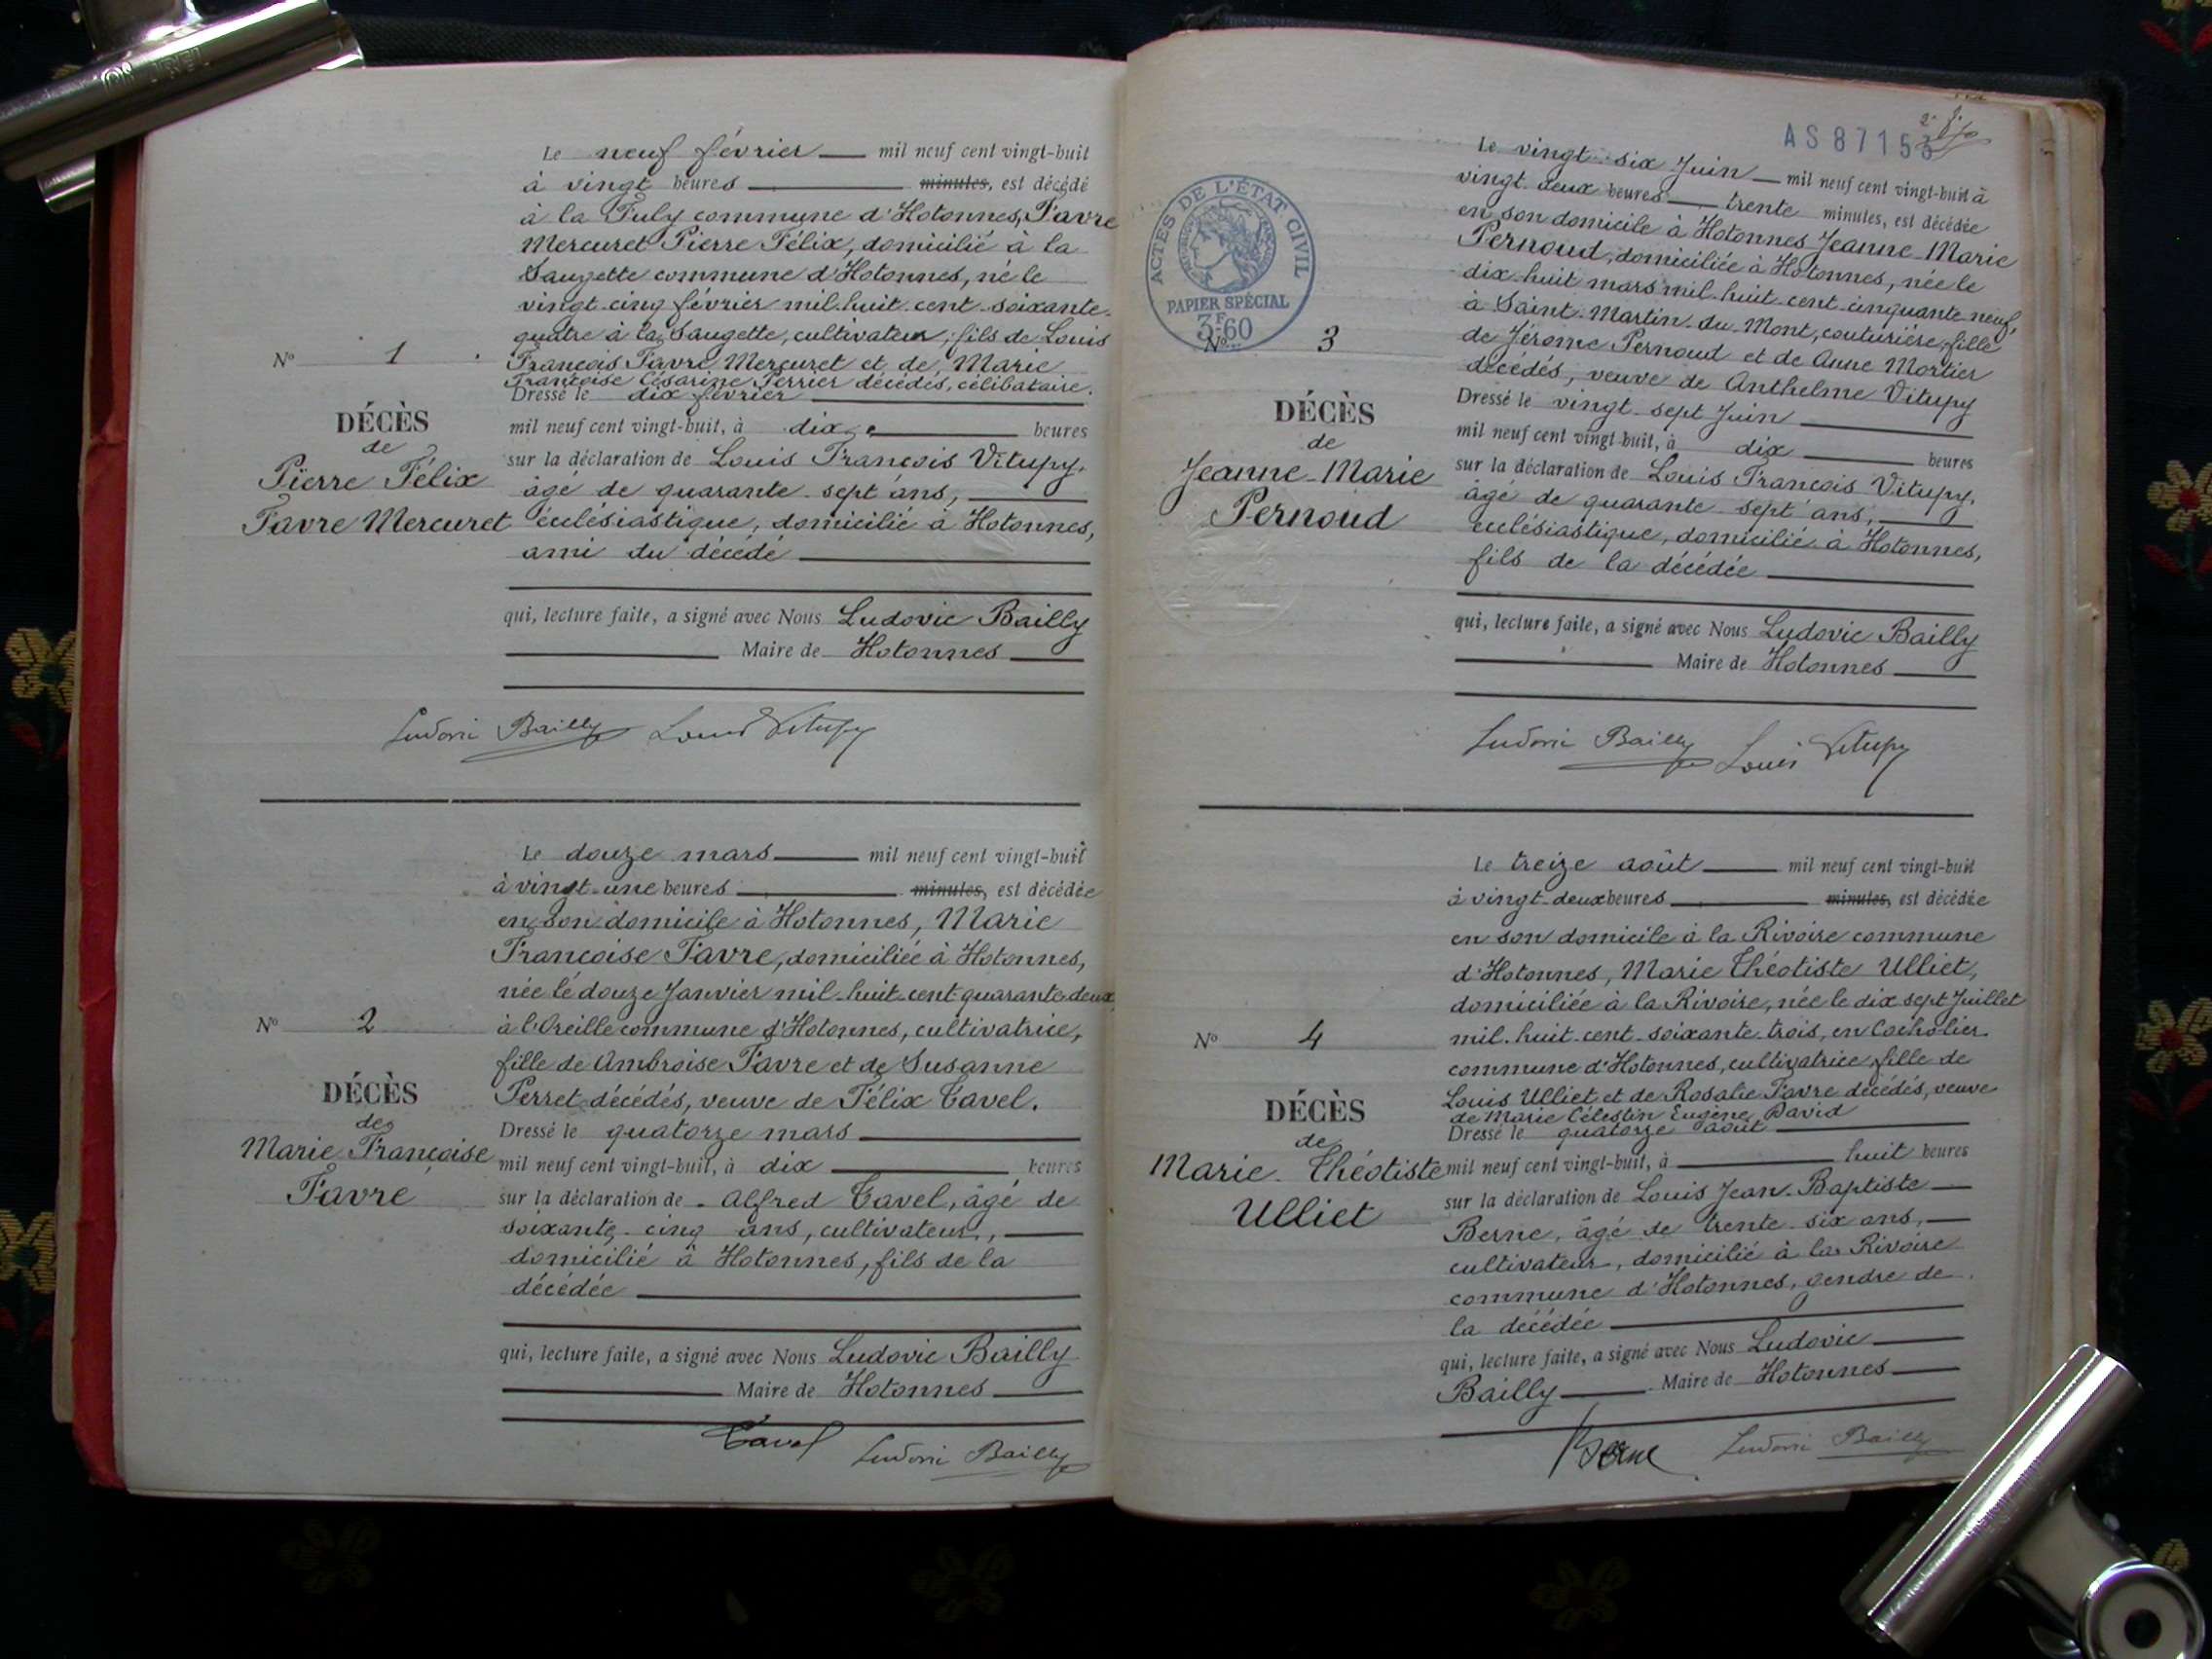 Le neuf février mil neuf cent vingt-huit
à vingt heures minutes, est décédé
à la Fuly commune d'Hotonnes, Favre
Mercuret Pierre Félix, domicilié à la
Saugette commune d'Hotonnes, né le
vingt-cinq février mil-huit-cent-soixante-
quatre à la Saugette, cultivateur, fils de Louis
François Favre Mercuret et de Marie
Françoise Césarine Perrier décédés, célibataire.
Nº 1
DÉCÈS
de
Pierre Félix
Favre Mercuret
Dressé le dix février
mil neuf cent vingt-huit, à dix heures
sur la déclaration de Louis François Vitupy,
âgé de quarante-sept ans,
écclésiastique, domicilié à Hotonnes,
ami du décédé
qui, lecture faite, a signé avec Nous Ludovic Bailly
Maire de Hotonnes
Ludovic Bailly Louis Vitupy
Le douze mars mil neuf cent vingt-huit
à vingt-une heures minutes, est décédée
en son domicile à Hotonnes, Marie
Françoise Favre, domiciliée à Hotonnes,
née le douze Janvier mil-huit-cent-quarante-deux
à l'Oreille commune d'Hotonnes, cultivatrice,
fille de Ambroise Favre et de Susanne
Perret décédés, veuve de Félix Tavel.
Nº 2
DÉCÈS
de
Marie Françoise
Favre
Dressé le quatorze mars
mil neuf cent vingt-huit, à dix heures
sur la déclaration de Alfred Tavel, âgé de
soixante-cinq ans, cultivateur,
domicilié à Hotonnes, fils de la
décédée
qui, lecture faite, a signé avec Nous Ludovic Bailly
Maire de Hotonnes
Tavel Ludovic Bailly
AS 8715
ACTES DE L'ÉTAT CIVIL
PAPIER SPÉCIAL
3F60
Le vingt-six Juin mil neuf cent vingt-huit à
vingt-deux heures trente minutes, est décédée
en son domicile à Hotonnes Jeanne Marie
Pernoud, domiciliée à Hotonnes, née le
dix-huit mars mil-huit-cent-cinquante-neuf,
à Saint-Martin-du-Mont, couturière, fille
de Jérome Pernoud et de Anne Mortier
décédés, veuve de Anthelme Vitupy
Nº 3
DÉCÈS
de
Jeanne-Marie
Pernoud
Dressé le vingt-sept Juin
mil neuf cent vingt-huit, à dix heures
sur la déclaration de Louis François Vitupy,
âgé de quarante-sept ans,
ecclésiastique, domicilié à Hotonnes,
fils de la décédée
qui, lecture faite, a signé avec Nous Ludovic Bailly
Maire de Hotonnes
Ludovic Bailly Louis Vitupy
Le treize août mil neuf cent vingt-huit
à vingt-deux heures minutes, est décédée
en son domicile à la Rivoire commune
d'Hotonnes, Marie Théotiste Ulliet,
domiciliée à la Rivoire, née le dix sept Juillet
mil-huit-cent-soixante-trois, en Cocholier
commune d'Hotonnes, cultivatrice, fille de
Louis Ulliet et de Rosalie Favre décédés, veuve
de Marie Célestin Eugène David
Nº 4
DÉCÈS
de
Marie-Théotiste
Ulliet
Dressé le quatorze août
mil neuf cent vingt-huit, à huit heures
sur la déclaration de Louis Jean-Baptiste
Berne, âgé de trente-six ans,
cultivateur, domicilié à la Rivoire
commune d'Hotonnes, gendre de
la décédée
qui, lecture faite, a signé avec Nous Ludovic
Bailly Maire de Hotonnes
Berne Ludovic Bailly